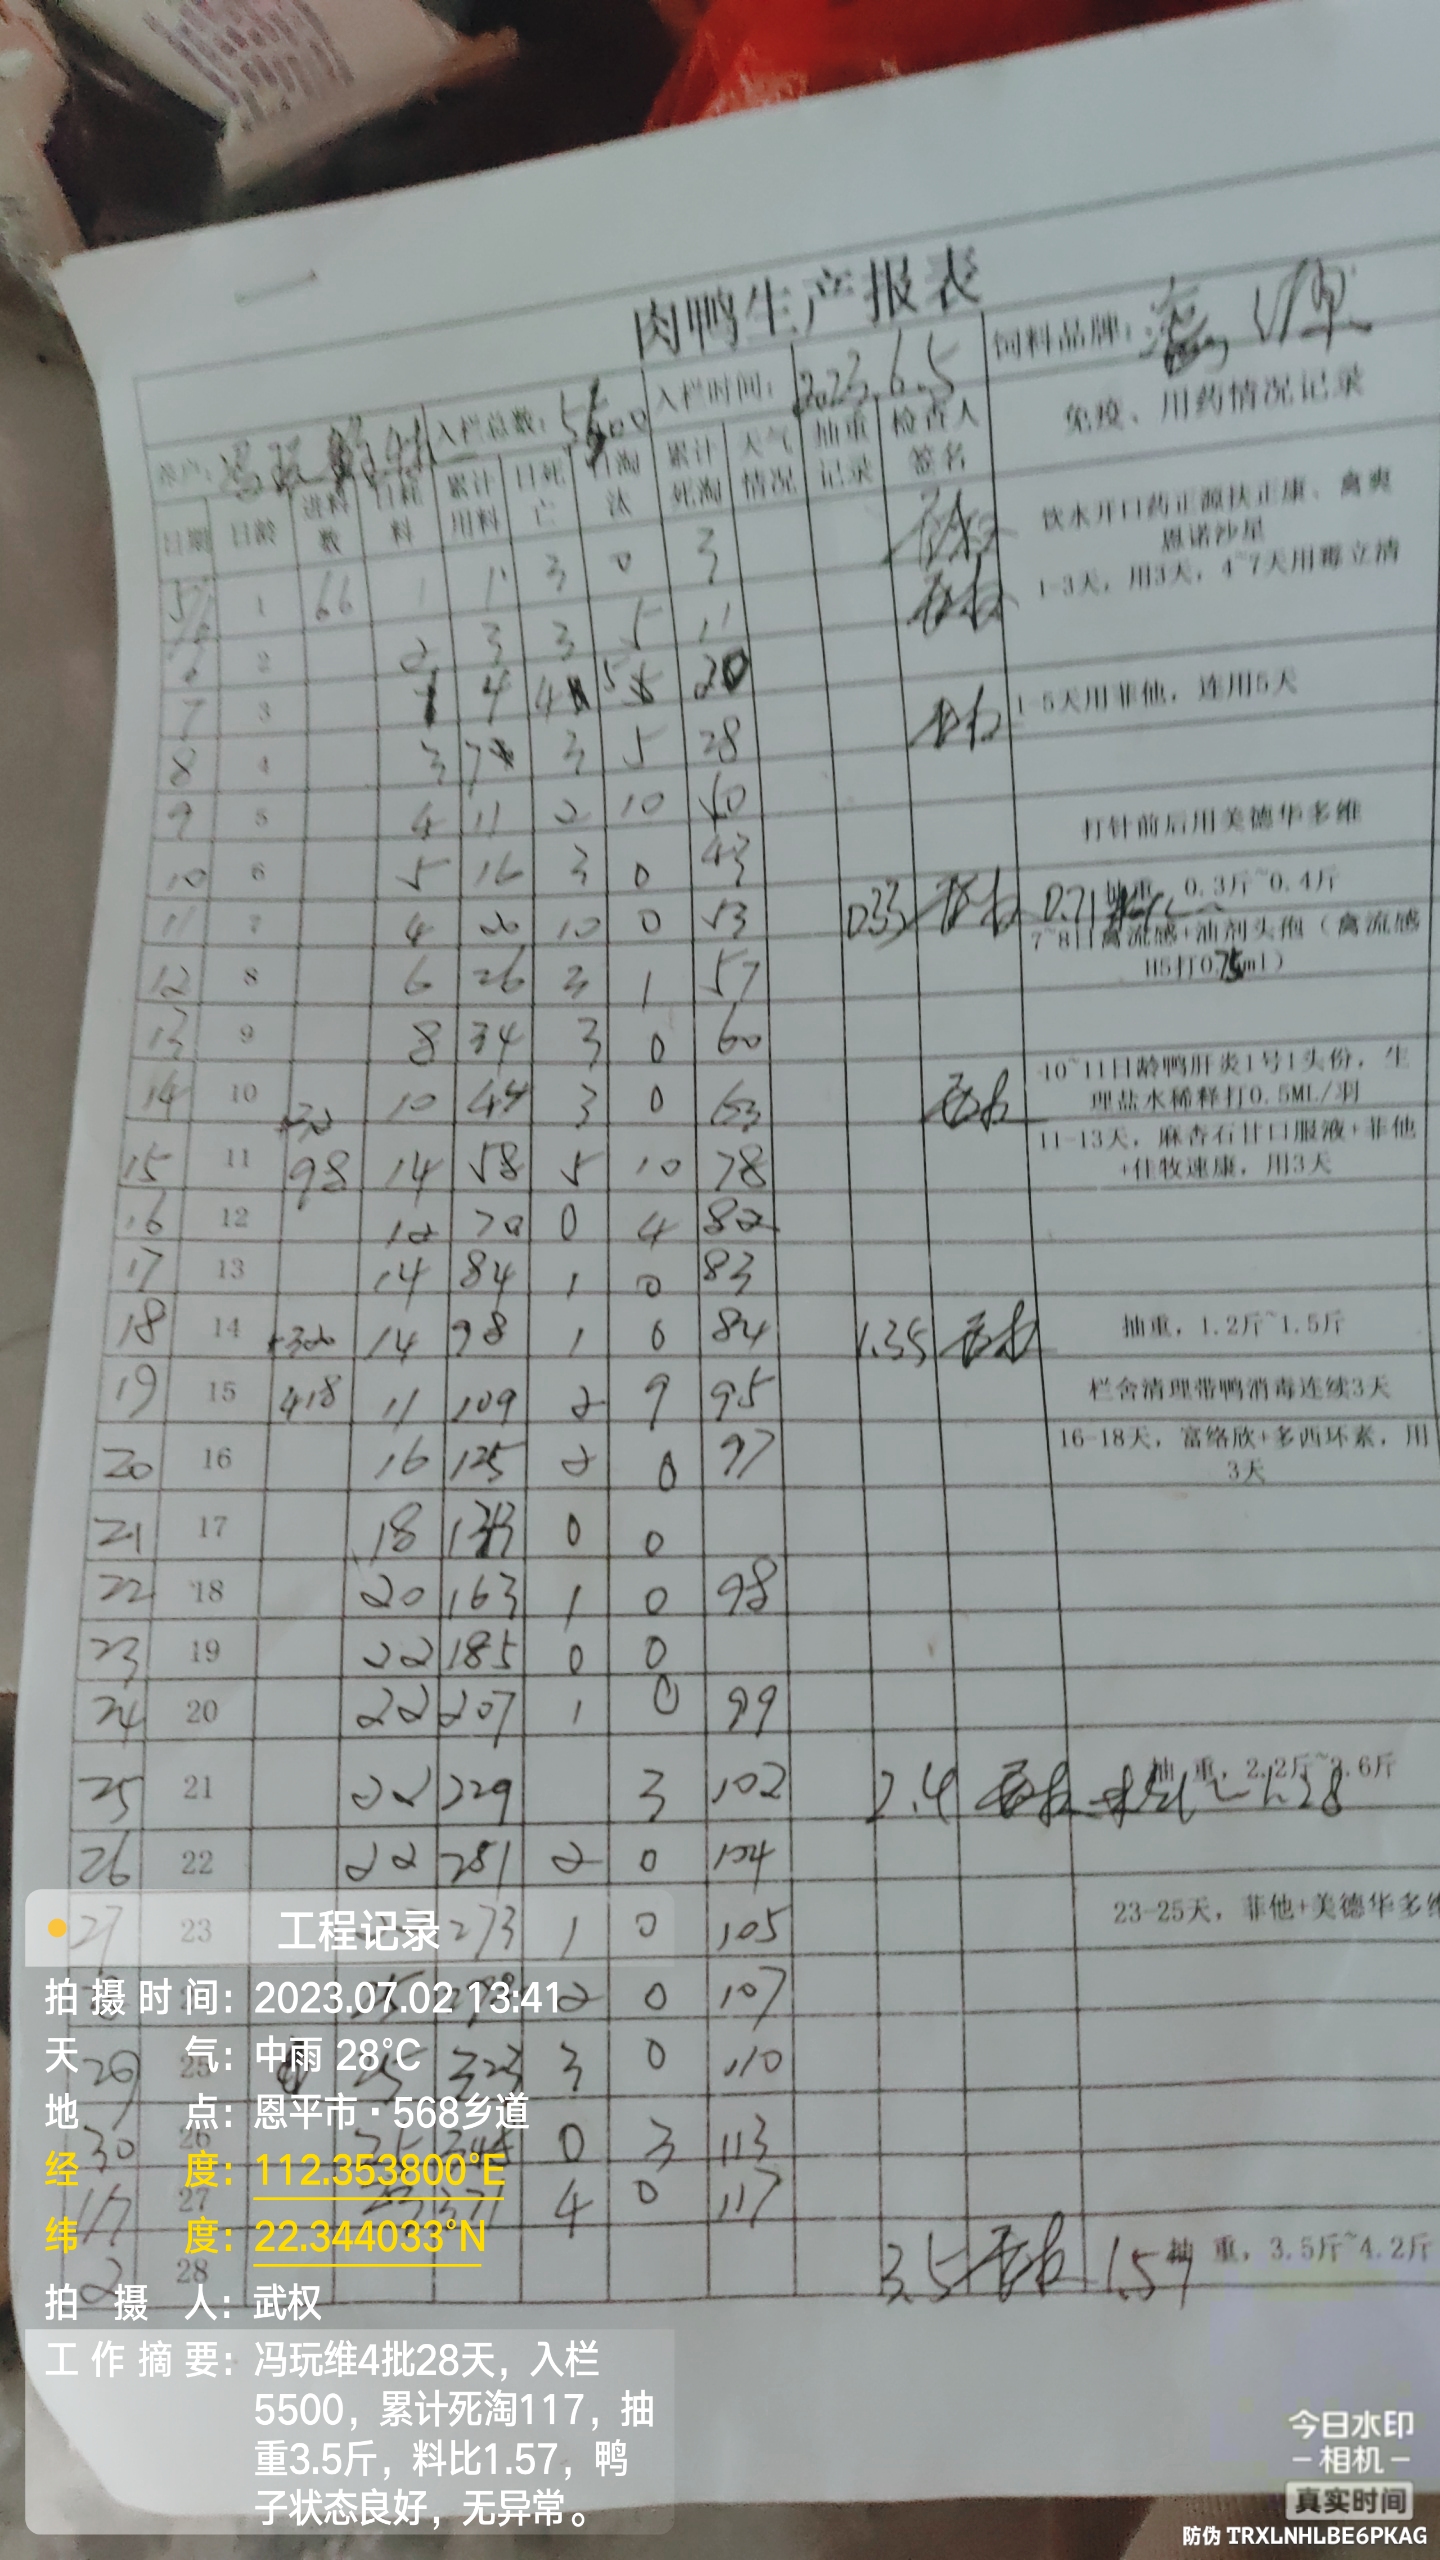 肉鸭生产报表
养户: 入栏总数: 5500 入栏时间: 2023.6.5 饲料品牌:
日期 日龄 进料数 日耗料 累计用料 日死亡 日淘汰 累计死淘 天气情况 抽重记录 检查人签名 免疫、用药情况记录
1 66 1 1 3 0 3 饮水开口药正源扶正康、禽爽
恩诺沙星
6 2 2 3 3 5 11 1-3天，用3天，4~7天用霉立清
7 3 1 4 4 5 20 1-5天用菲他，连用5天
8 4 3 7 3 5 28
9 5 4 11 2 10 40 打针前后用美德华多维
10 6 5 16 3 0 43
11 7 4 20 10 0 53 0.33 0.71 抽重，0.3斤~0.4斤
7~8日禽流感+油剂头孢（禽流感
H5打0.75ml）
12 8 6 26 3 1 57
13 9 8 34 3 0 60
14 10 10 44 3 0 63 10~11日龄鸭肝炎1号1头份，生
理盐水稀释打0.5ML/羽
15 11 98 14 58 5 10 78 11-13天，麻杏石甘口服液+菲他
+佳牧速康，用3天
16 12 12 70 0 4 82
17 13 14 84 1 0 83
18 14 +320 14 98 1 0 84 1.35 抽重，1.2斤~1.5斤
19 15 418 11 109 2 9 95 栏舍清理带鸭消毒连续3天
20 16 16 125 2 0 97 16-18天，富络欣+多西环素，用
3天
21 17 18 143 0 0
22 18 20 163 1 0 98
23 19 22 185 0 0
24 20 22 207 1 0 99
25 21 22 229 3 102 2.4 抽重，2.2斤~2.6斤 1.28
26 22 22 251 2 0 104
27 23 273 1 0 105 23-25天，菲他+美德华多维
25 298 2 0 107
29 25 25 323 3 0 110
30 26 25 348 0 3 113
1/7 27 23 371 4 0 117
2 28 3.5 1.57 抽重，3.5斤~4.2斤
工程记录
拍摄时间: 2023.07.02 13:41
天气: 中雨 28℃
地点: 恩平市·568乡道
经度: 112.353800°E
纬度: 22.344033°N
拍摄人: 武权
工作摘要: 冯玩维4批28天，入栏
5500，累计死淘117，抽
重3.5斤，料比1.57，鸭
子状态良好，无异常。
今日水印
-相机-
真实时间
防伪 TRXLNHLBE6PKAG